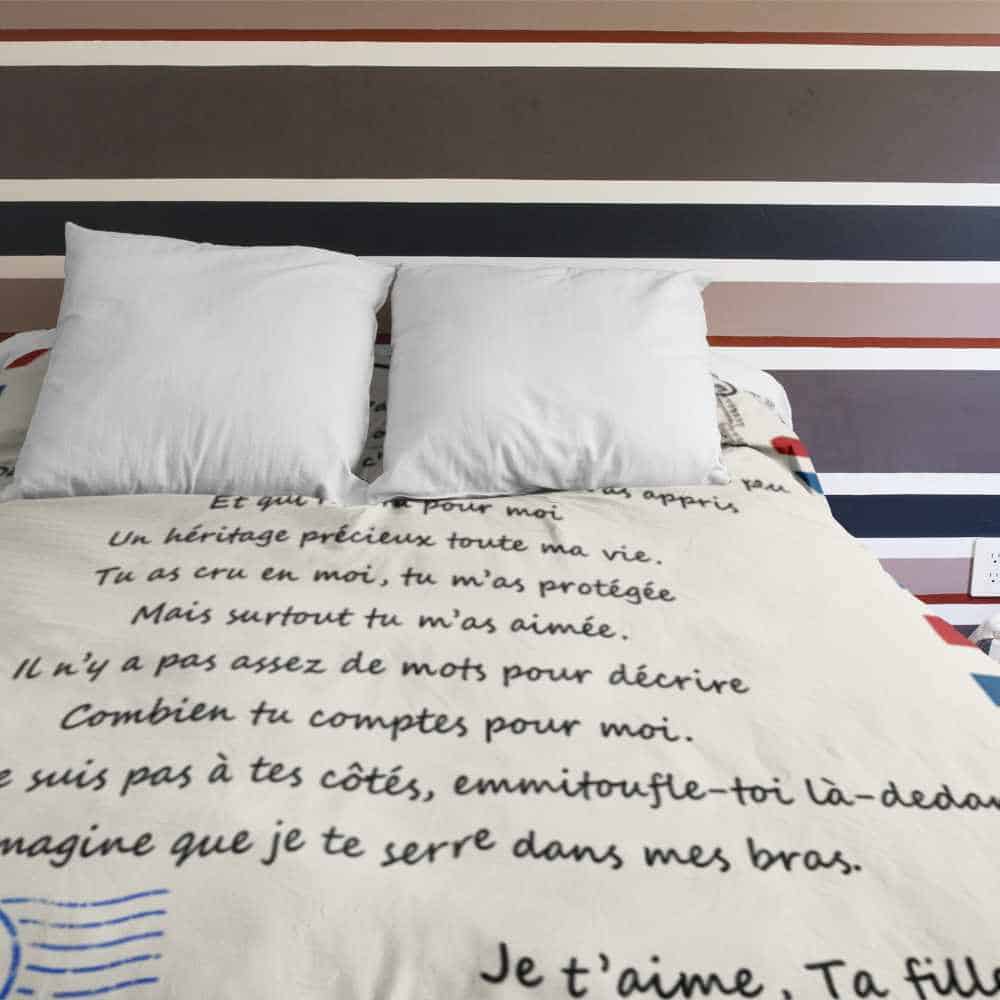 peu
as appris
Et qui pour moi
Un héritage précieux toute ma vie.
Tu as cru en moi, tu m'as protégée
Mais surtout tu m'as aimée.
Il n'y a pas assez de mots pour décrire
Combien tu comptes pour moi.
e suis pas à tes côtés, emmitoufle-toi là-dedan
magine que je te serre dans mes bras.
Je t'aime, Ta fille